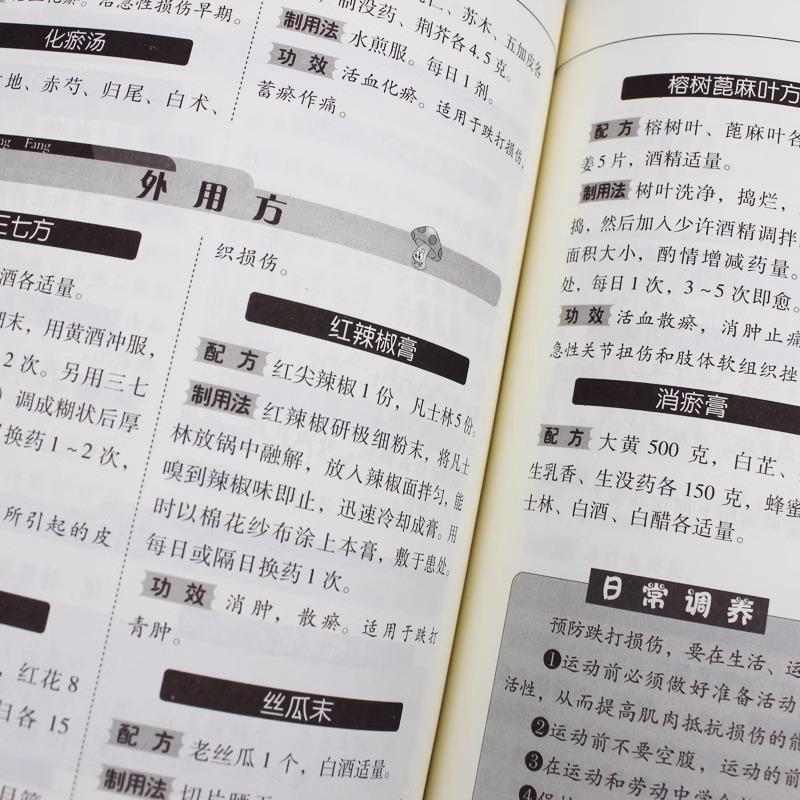 化瘀。治急性损伤早期。
化瘀汤
地、赤芍、归尾、白术、
仁、苏木、五加皮各
制没药、荆芥各4.5克。
制用法 水煎服。每日1剂。
功效 活血化瘀。适用于跌打损伤，
蓄瘀作痛。
Fang
外用方
三七方
酒各适量。
末，用黄酒冲服，
2次。另用三七
调成糊状后厚
换药1～2次，
所引起的皮
，红花8
归各15
织损伤。
红辣椒膏
配方 红尖辣椒1份，凡士林5份。
制用法 红辣椒研极细粉末，将凡士
林放锅中融解，放入辣椒面拌匀，能
嗅到辣椒味即止，迅速冷却成膏。用
时以棉花纱布涂上本膏，敷于患处。
每日或隔日换药1次。
功效 消肿，散瘀。适用于跌打
青肿。
丝瓜末
配方 老丝瓜1个，白酒适量。
制用法 切片
榕树蓖麻叶方
配方 榕树叶、蓖麻叶各
姜5片，酒精适量。
制用法 树叶洗净，捣烂，
捣，然后加入少许酒精调拌
面积大小，酌情增减药量。
处，每日1次，3～5次即愈。
功效 活血散瘀，消肿止痛
急性关节扭伤和肢体软组织挫
消瘀膏
配方 大黄500克，白芷、
生乳香、生没药各150克，蜂蜜
士林、白酒、白醋各适量。
日常调养
预防跌打损伤，要在生活、运
❶运动前必须做好准备活动
活性，从而提高肌肉抵抗损伤的能
❷运动前不要空腹，运动的前
❸在运动和劳动中学会
❹保